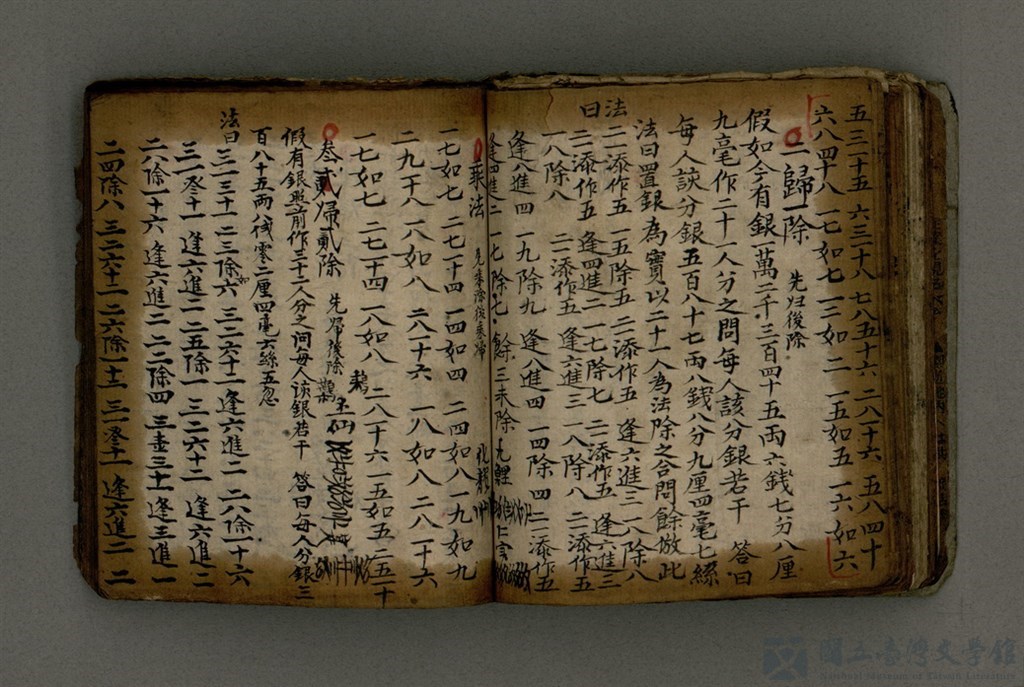 五三十五 六三十八 七八五十六 二八十六 五八四十
六八四十八 一七如七 一三如二 一五如五 一六如六
二歸除 先归後除
假如今有銀一萬二千三百四十五兩六錢七分八厘
九毫作二十一人分之問每人該分銀若干 答曰
每人該分銀五百八十七兩八錢八分九厘四毫七絲
法曰置銀為實以二十一人為法除之合問餘倣此
法曰 二添作五 一五除五 二添作五 逢六進三 一八除八
二添作五 逢四進二 一七除七 二添作五 逢六進三
一八除八 二添作五 逢六進三 一八除八 二添作五
逢八進四 一九除九 逢八進四 一四除四 二添作五
逢四進二 一七除七 餘三未除
乘法
一如七 二七十四 一四如四 二四如八 一九如九
二九十八 一八如八 二八十六 一八如八 二八一十六
一七如七 二七一四 一八如八 二八十六 一五如五 二五一十
叁弍歸弍除 先归後除
假有銀照前作三十二人分之问每人该銀若干 答曰每人分銀三
百八十五両八戋零二厘四毫六絲五忽
法曰 三一三十一 二三除六 三二六十二 逢六進二 二八除一十六
三一三十一 逢六進二 二五除一 三二六十二 逢六進二
二八除十六 逢六進二 二二除四 三一三十一 逢三進一
二四除八 三二六十二 二六除一十二 三一三十一 逢六進二 二
國立臺灣文學館
National Museum of Taiwan Literature